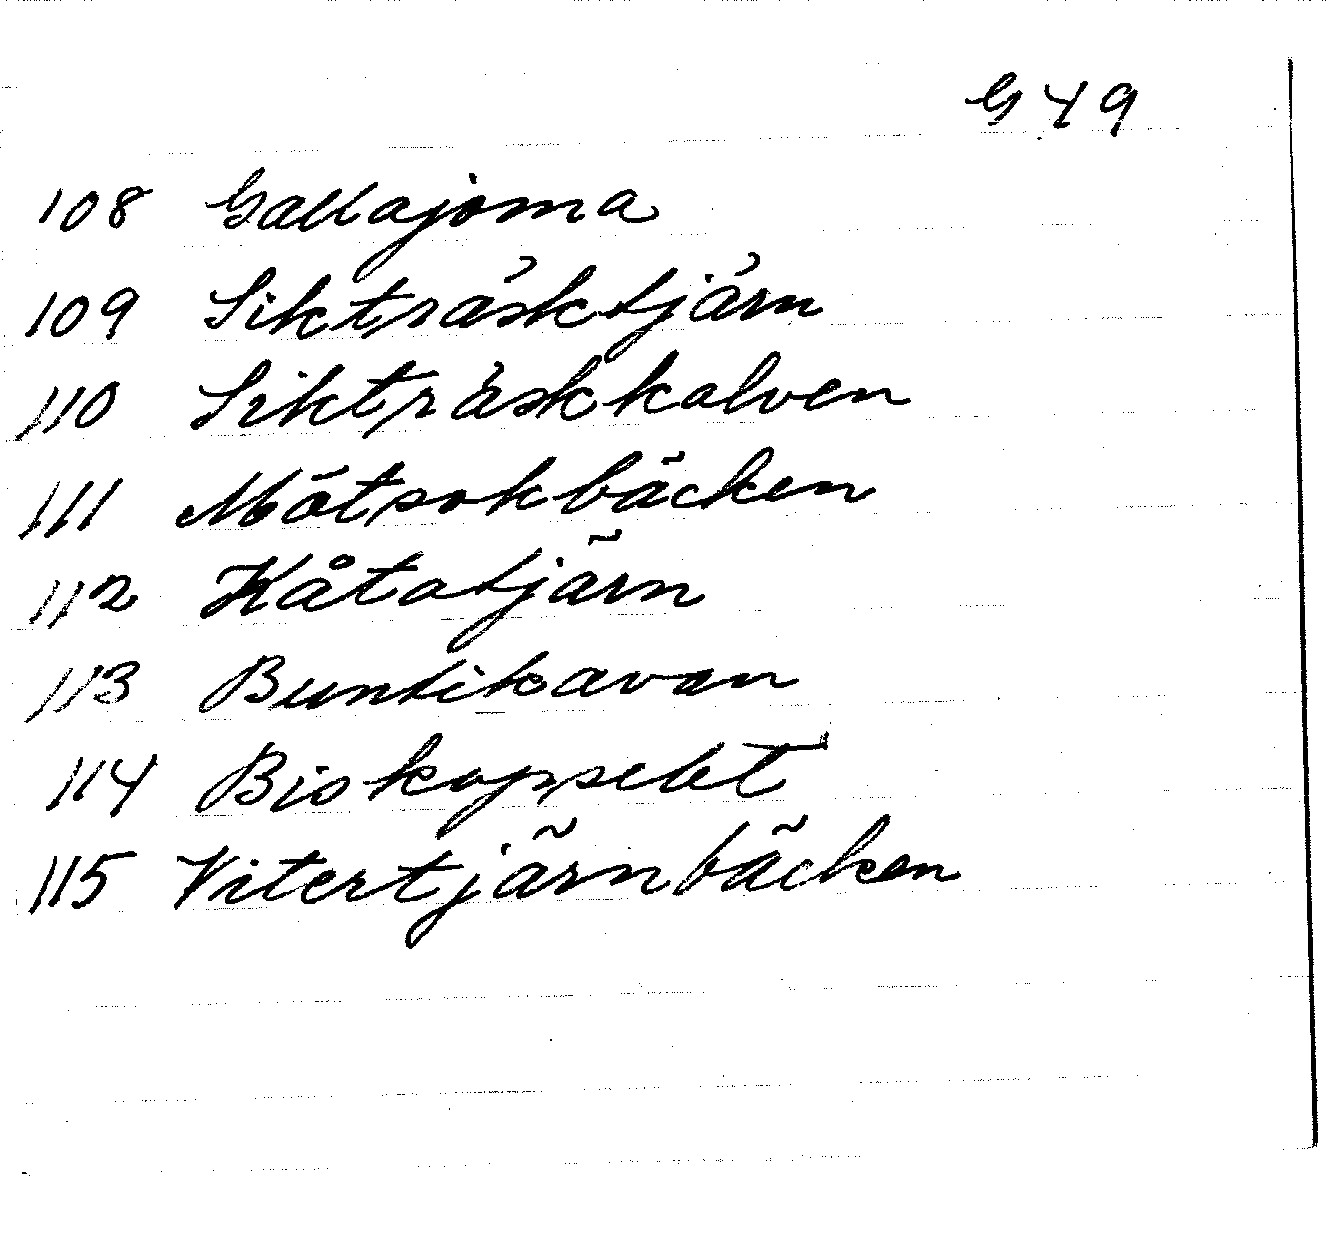 G 49
108 Gallajoma
109 Sikträsktjärn
110 Sikträskkalven
111 Mötsokbäcken
112 Kåtatjärn
113 Buntikavan
114 Biskopselet
115 Vitertjärnbäcken